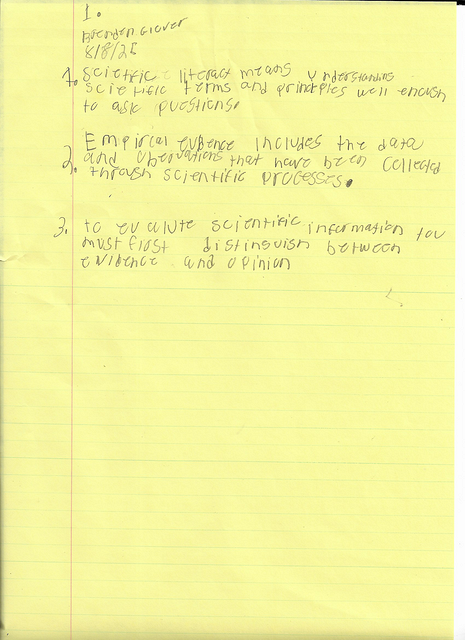 1.
Brenden Glover
8/8/21
1. Scietfic literact means Understanding
scietific terms and principles well enough
to ask questions.
Empircal evdence includes the data
2. and obervations that have been collected
through scientific processes.
3. to evalute scientific information you
must first distinguish between
evidence and opinion